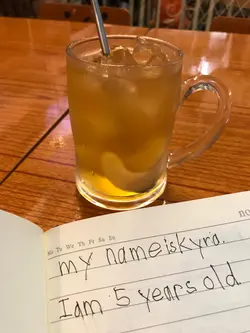 no
Mo Tu We Th Fr Sa Su
my name is kyra.
I am 5 years old